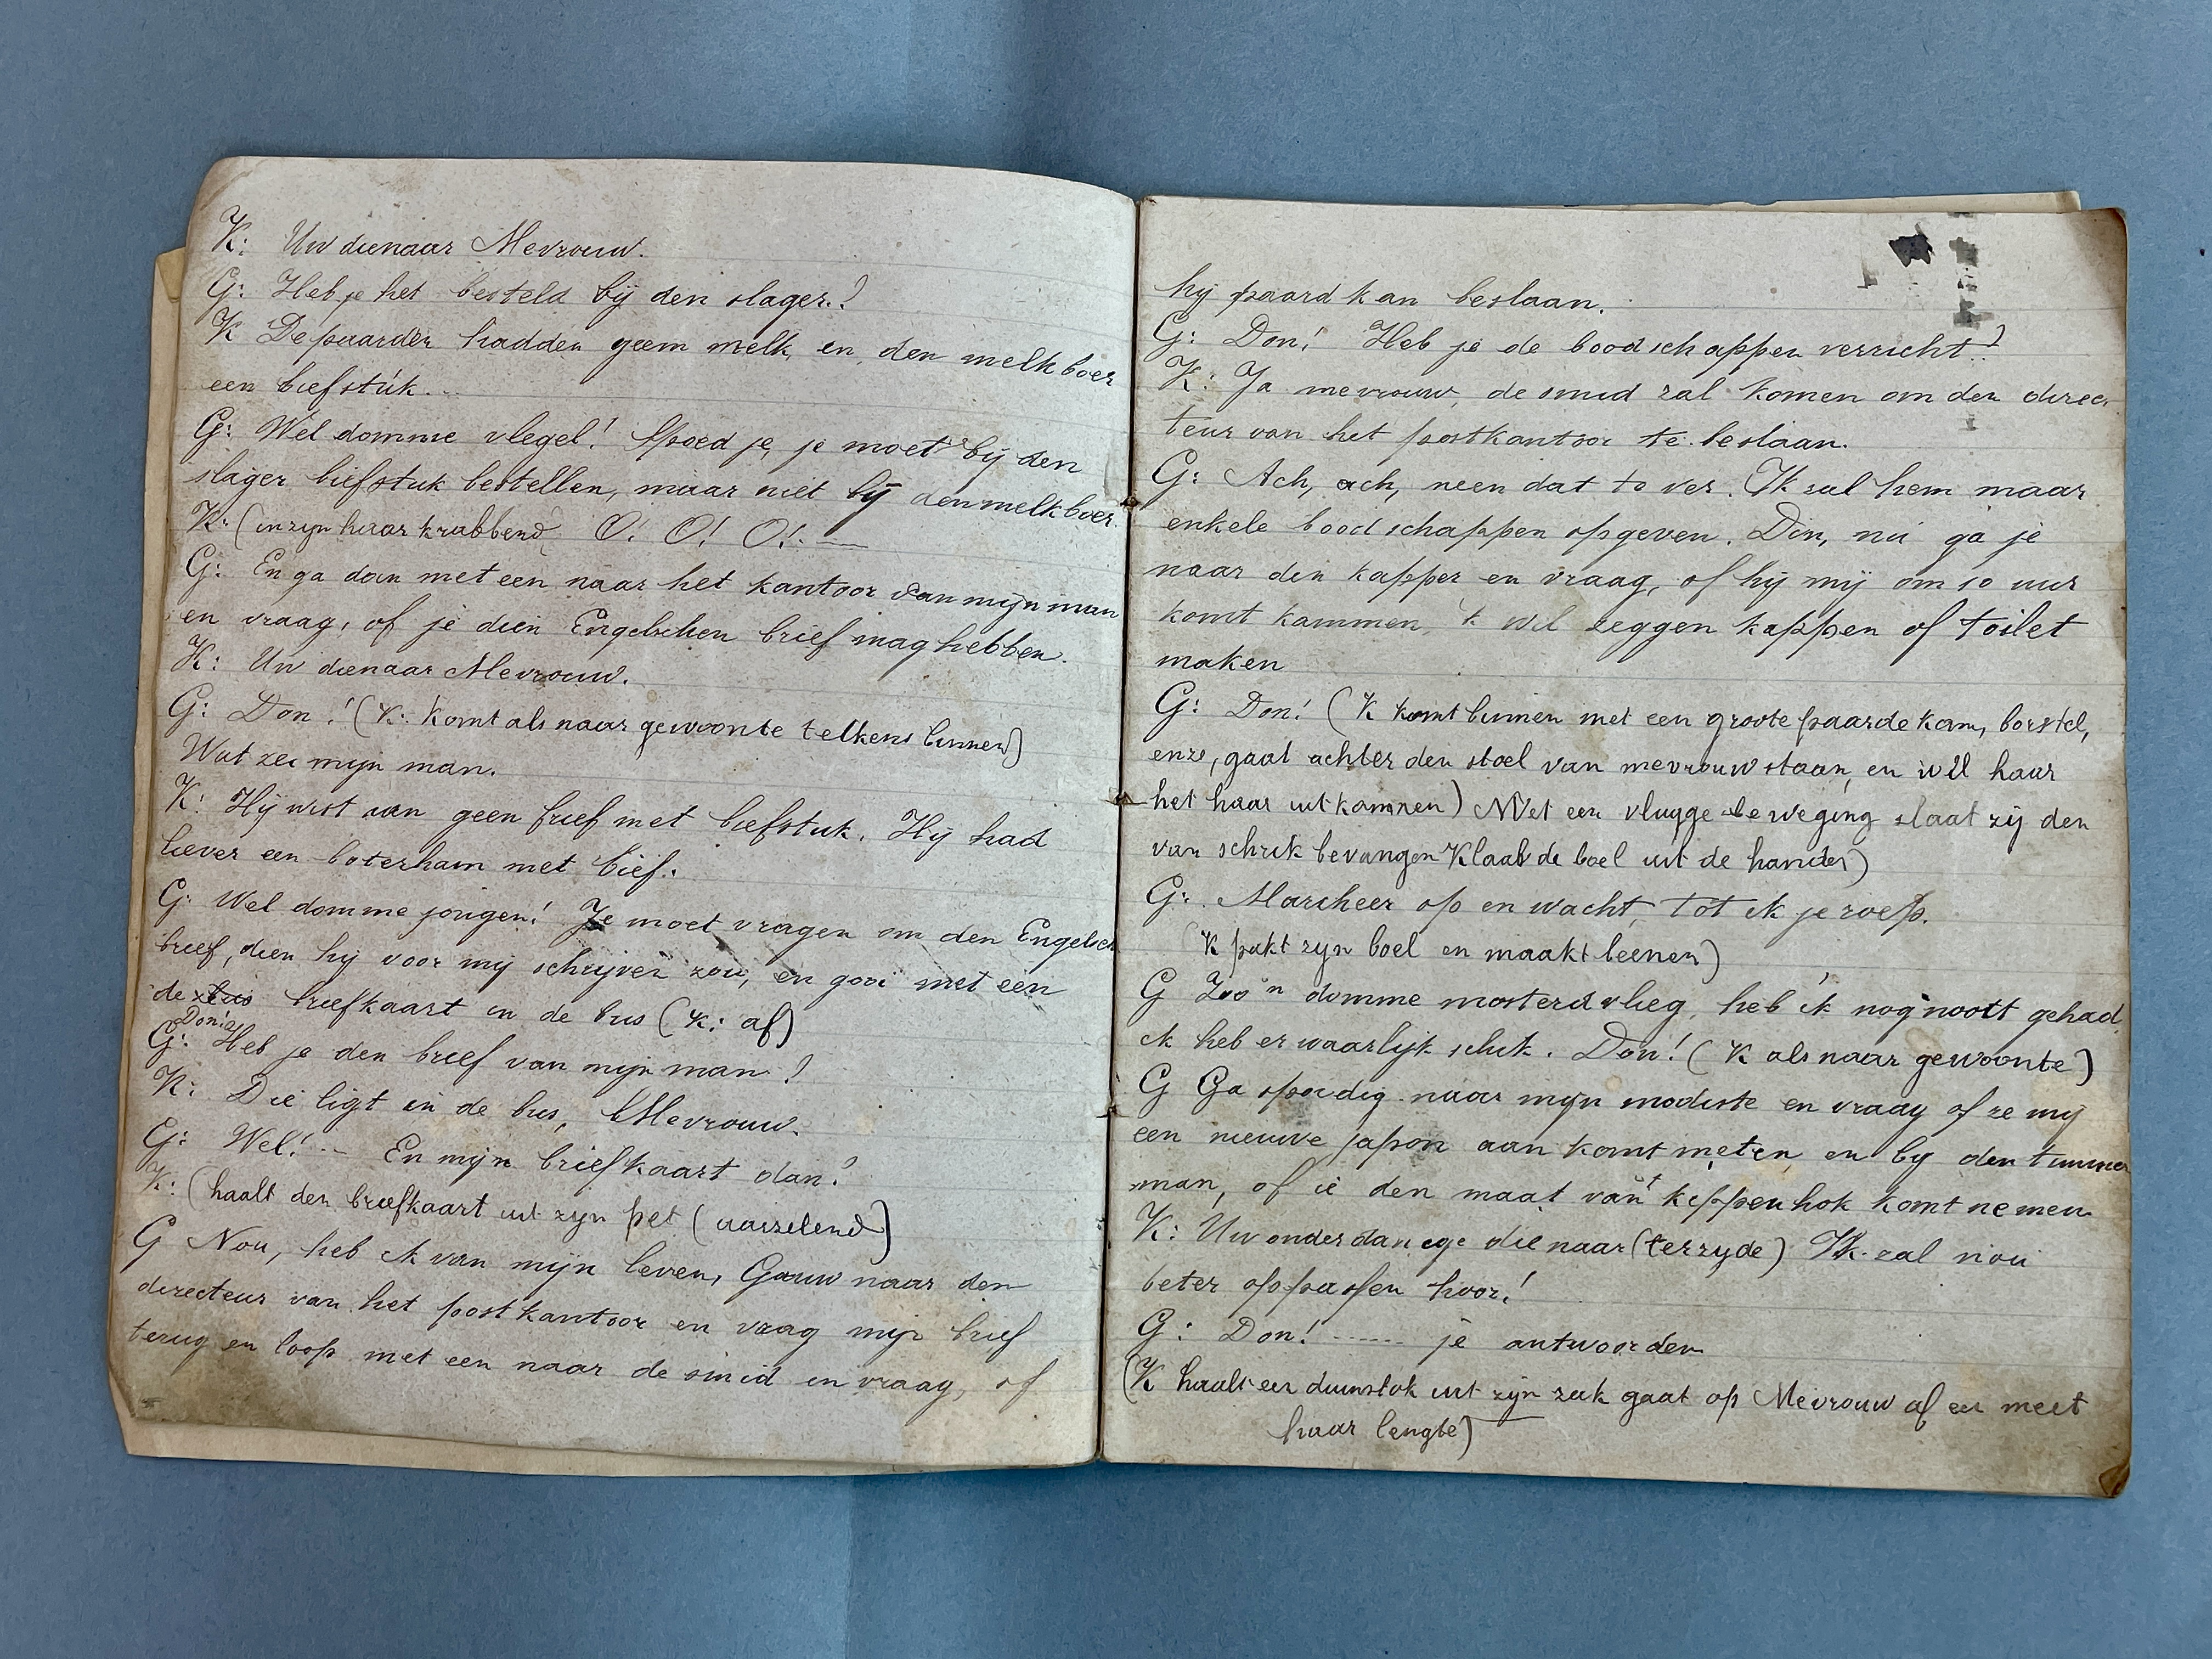 K: Uw dienaar Mevrouw.
G: Heb je het besteld bij den slager?
K De paarden hadden geen melk, en den melkboer
een biefstuk...
G: Wel domme vlegel! Spoed je, je moet bij den
slager biefstuk bestellen, maar niet bij den melkboer.
K: (in zijn haar krabbend) O! O! O!. —
G: En ga dan met een naar het kantoor van mijn man
en vraag, of je dien Engelschen brief mag hebben.
K: Uw dienaar Mevrouw.
G: Don! (K: Komt als naar gewoonte telkens binnen)
Wat zei mijn man.
K: Hij wist van geen brief met biefstuk. Hij had
liever een boterham met bief.
G: Wel domme jongen! Je moet vragen om den Engelsch
brief, dien hij voor mij schrijven zou, en gooi met een
de briefkaart in de bus (K: af)
Don!
G: Heb je den brief van mijn man?
K: Die ligt in de bus, Mevrouw.
G: Wel! -- En mijn briefkaart dan?
K: (haalt den briefkaart uit zijn pet (aarzelend)
G Nou, heb ik van mijn leven, Gauw naar den
directeur van het postkantoor en vraag mijn brief
terug en loop met een naar de smid en vraag, of
hij paard kan beslaan.
G: Don! Heb je de boodschappen verricht?
K: Ja mevrouw, de smid zal komen om den direc
teur van het postkantoor te beslaan.
G: Ach, ach, neen dat to ver. Ik zal hem maar
enkele boodschappen opgeven. Don, nu ga je
naar den kapper en vraag, of hij mij om 10 uur
komt kammen, 'k wil zeggen kappen of toilet
maken
G: Don! (K komt binnen met een groote paardekam, borstel,
enz, gaat achter den stoel van mevrouw staan, en wil haar
het haar uitkammen) Met een vlugge beweging slaat zij den
van schrik bevangen Klaas de boel uit de handen)
G: Marcheer op en wacht, tot ik je roep.
(K pakt zijn boel en maakt beenen)
G Zoo'n domme mosterdvlieg, heb ik nog nooit gehad,
ik heb er waarlijk schik. Don! (K als naar gewoonte)
G Ga spoedig naar mijn modiste en vraag of ze mij
een nieuwe japon aan komt meten, en bij den timmer
man, of ie den maat van 't kippenhok komt nemen
K: Uw onderdanege dienaar (terzijde) Ik zal nou
beter oppassen hoor!
G: Don! ------ je antwoorden
(K haalt een duimstok uit zijn zak gaat op Mevrouw af en meet
haar lengte)